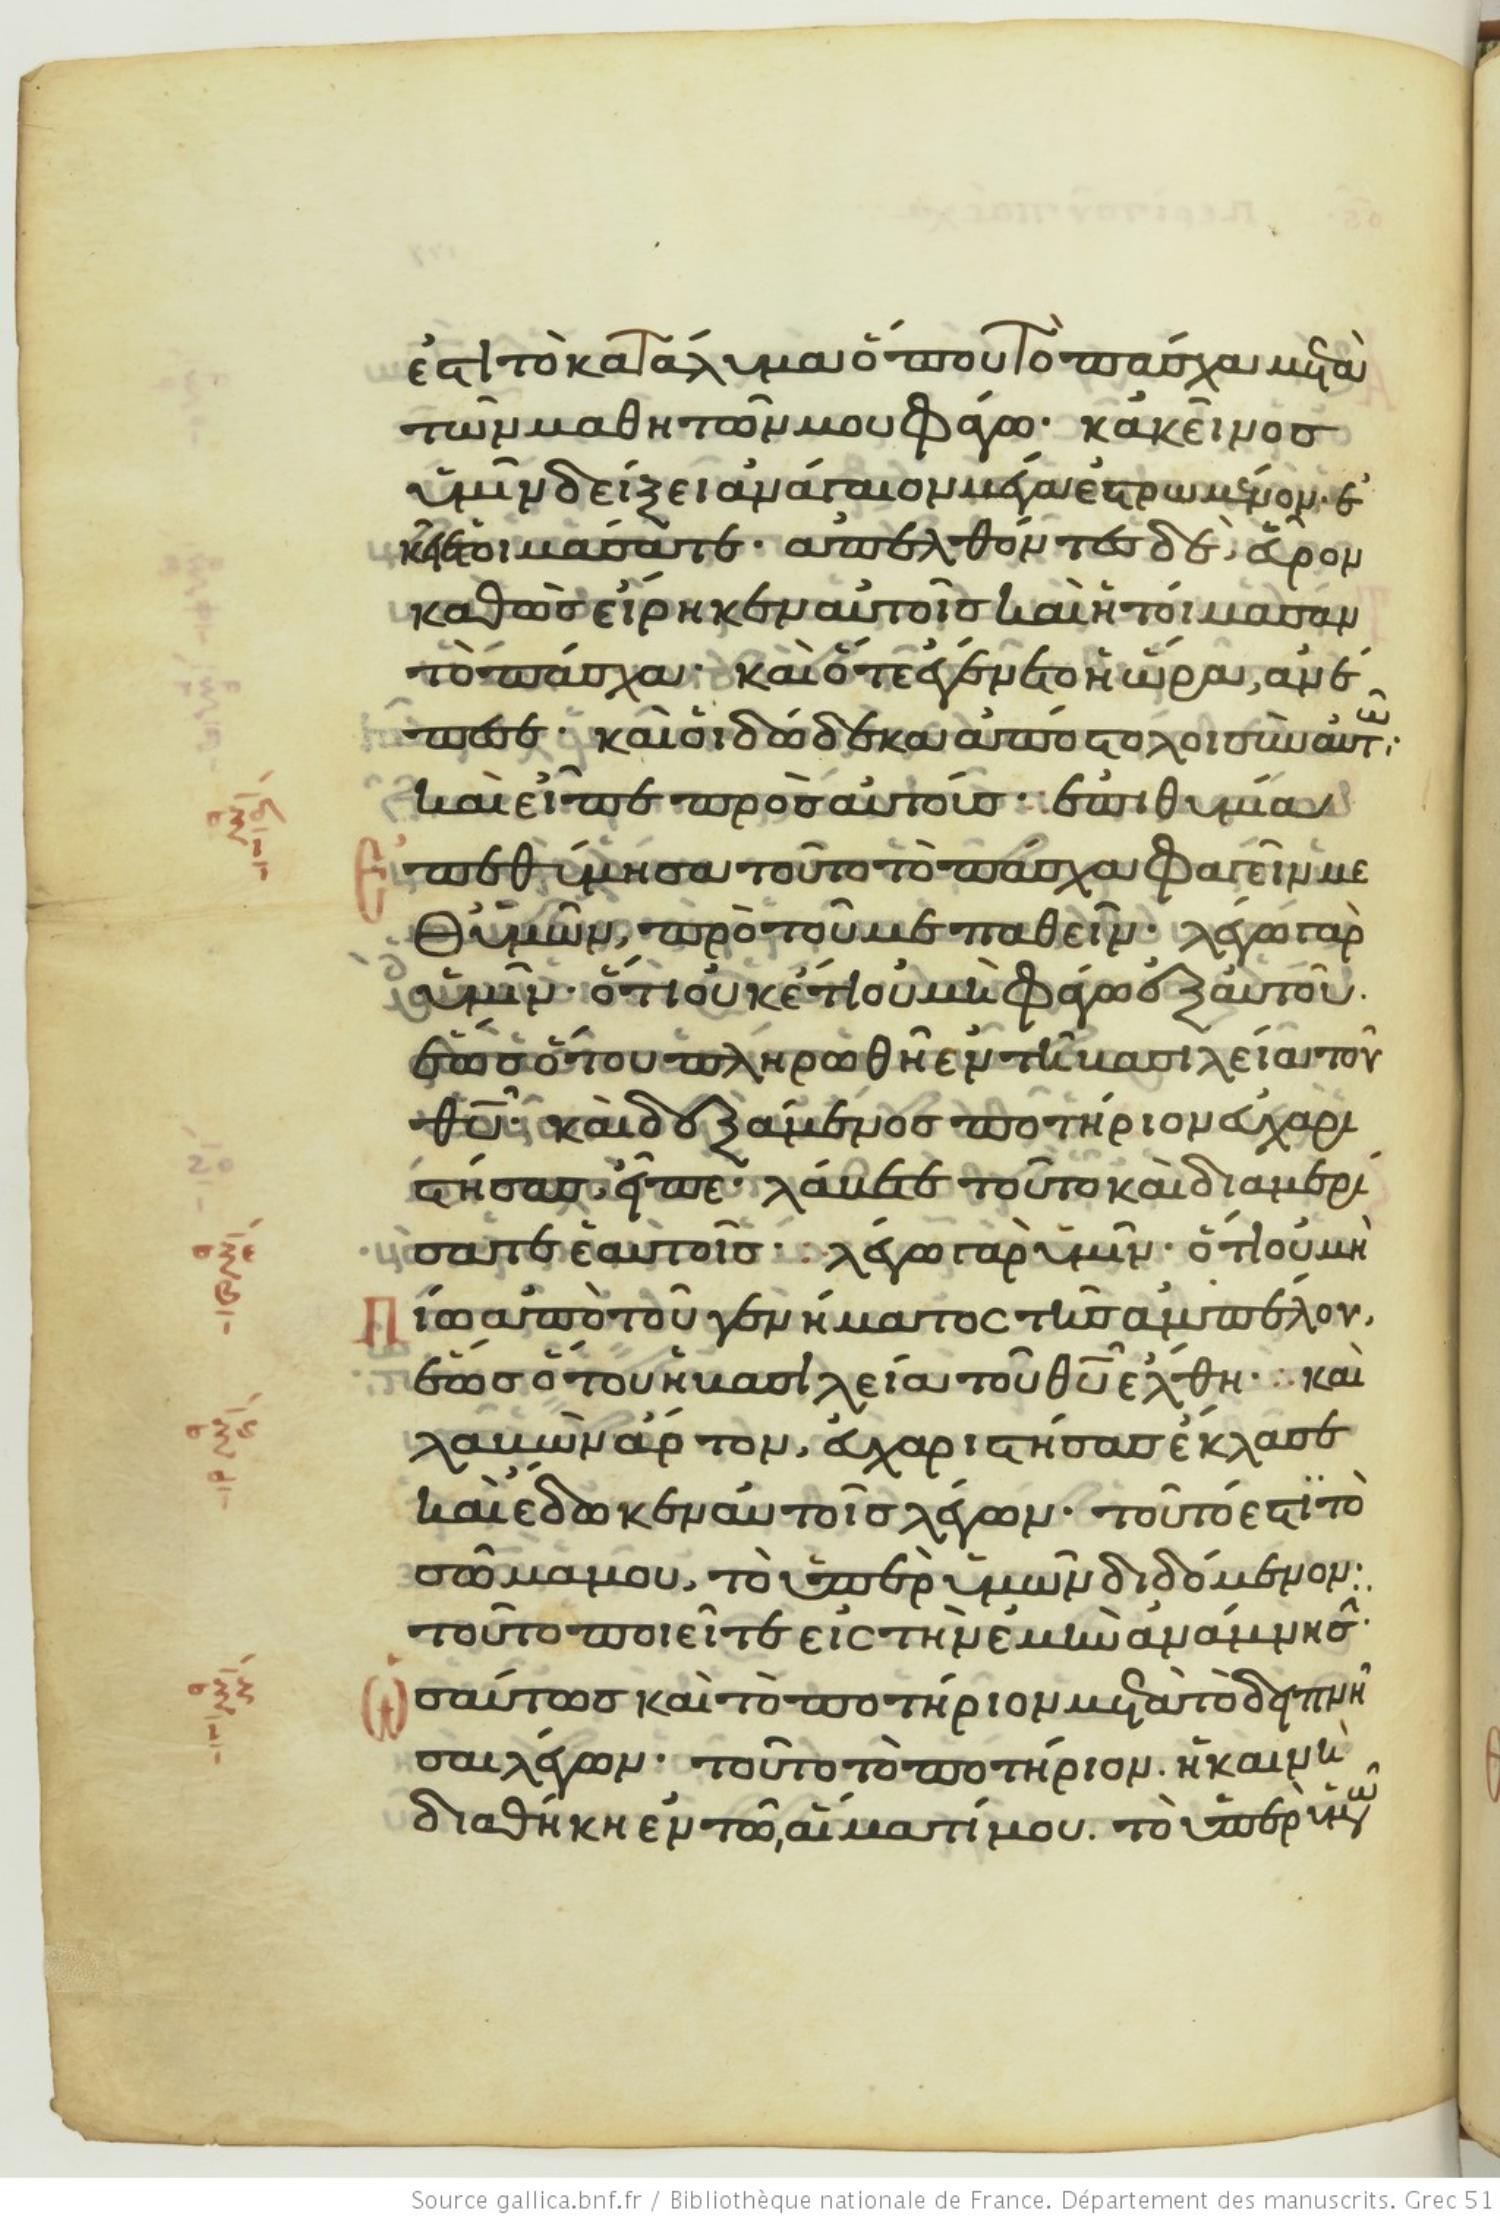 ἐστὶ τὸ κατάλυμα ὅπου τὸ πάσχα μετὰ
τῶν μαθητῶν μου φάγω· κἀκεῖνος
ὑμῖν δείξει ἀνάγαιον μέγα ἐστρωμένον· ἐ
κεῖ ἑτοιμάσατε· ἀπελθόντες δὲ, εὗρον
καθὼς εἴρηκεν αὐτοῖς καὶ ἡτοίμασαν
τὸ πάσχα· καὶ ὅτε ἐγένετο ἡ ὥρα, ἀνέ
πεσε· καὶ οἱ δώδεκα ἀπόστολοι σὺν αὐτῶ·
καὶ εἶπε πρὸς αὐτούς· ἐπιθυμία
ἐπεθύμησα τοῦτο τὸ πάσχα φαγεῖν με
θ' ὑμῶν, πρὸ τοῦ με παθεῖν· λέγω γὰρ
ὑμῖν· ὅτι οὐκέτι οὐ μὴ φάγω ἐξ αὐτοῦ.
ἕως ὅτου πληρωθῆ ἐν τῆ βασιλεία τοῦ
θυ̅· καὶ δεξάμενος ποτήριον εὐχαρι
στήσας, εἶπε· λάβετε τοῦτο καὶ διαμερί
σατε ἑαυτοῖς· λέγω γὰρ ὑμῖν· ὅτι οὐ μὴ
πίω ἀπὸ τοῦ γενήματος τῆς ἀμπέλου,
ἕως ὅτου ἡ βασιλεία τοῦ θυ̅ ἔλθη· καὶ
λαβὼν ἄρτον, εὐχαριστήσας ἔκλασε
καὶ ἔδωκεν αὐτοῖς λέγων· τοῦτό ἐστϊ τὸ
σῶμα μου, τὸ ὑπὲρ ὑμῶν διδόμενον:
τοῦτο ποιεῖτε εἰς τὴν ἐμὴν ἀνάμνησ
ὡσαύτως καὶ τὸ ποτήριον μετὰ τὸ δειπνῆ
σαι λέγων· τοῦτο τὸ ποτήριον. ἡ καινὴ
διαθήκη ἐν τῶ αἵματί μου. τὸ ὑπὲρ ὑμῶν
Source gallica.bnf.fr / Bibliothèque nationale de France. Département des manuscrits. Grec 51